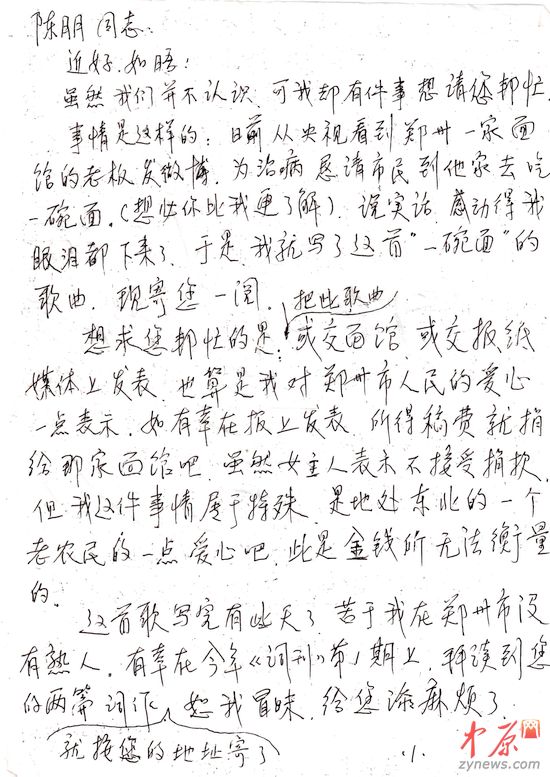 陈朋同志:
近好.如晤!
虽然我们并不认识.可我却有件事想请您帮忙.
事情是这样的:日前从央视看到郑州一家面
馆的老板发微博.为治病恳请市民到他家去吃
一碗面.(想必你比我更了解).说实话.感动得我
眼泪都下来了.于是.我就写了这首“一碗面”的
歌曲.现寄您一阅.
把此歌曲
想求您帮忙的是:或交面馆.或交报纸
媒体上发表.也算是我对郑州市人民的爱心
一点表示.如有幸在报上发表.所得稿费就捐
给那家面馆吧.虽然女主人表示不接受捐款.
但我这件事情属于特殊.是地处东北的一个
老农民的一点爱心吧.此是金钱所无法衡量
的.
这首歌写完有些天了.苦于我在郑州市没
有熟人.有幸在今年《词刊》第1期上.拜读到您
的两篇词作.恕我冒昧.给您添麻烦了.
就按您的地址寄了
·1·
中原网
zynews.com